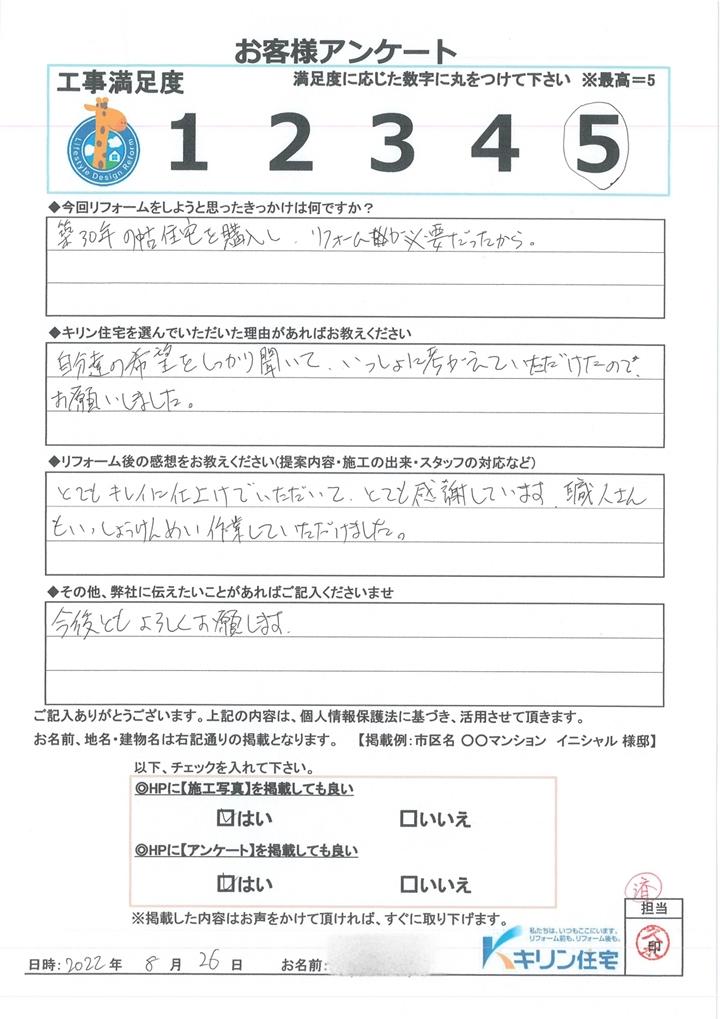 お客様アンケート
工事満足度
満足度に応じた数字に丸をつけて下さい ※最高=5
Lifestyle Design Reform
1 2 3 4 5
◆今回リフォームをしようと思ったきっかけは何ですか?
築30年の中古住宅を購入し、リフォームが必要だったから。
◆キリン住宅を選んでいただいた理由があればお教えください
自分達の希望をしっかり聞いて、いっしょに考がえていただけたので、
お願いしました。
◆リフォーム後の感想をお教えください(提案内容・施工の出来・スタッフの対応など)
とてもキレイに仕上げていただいて、とても感謝しています。職人さん
もいっしょうけんめい作業していただけました。
◆その他、弊社に伝えたいことがあればご記入くださいませ
今後ともよろしくお願します。
ご記入ありがとうございます。上記の内容は、個人情報保護法に基づき、活用させて頂きます。
お名前、地名・建物名は右記通りの掲載となります。 【掲載例:市区名 〇〇マンション イニシャル 様邸】
以下、チェックを入れて下さい。
◎HPに【施工写真】を掲載しても良い
☑はい □いいえ
◎HPに【アンケート】を掲載しても良い
☑はい □いいえ
※掲載した内容はお声をかけて頂ければ、すぐに取り下げます。
済
担当
印
私たちは、いつもここにいます。
リフォーム前も、リフォーム後も。
キリン住宅
日時:2022年 8月 26日 お名前: